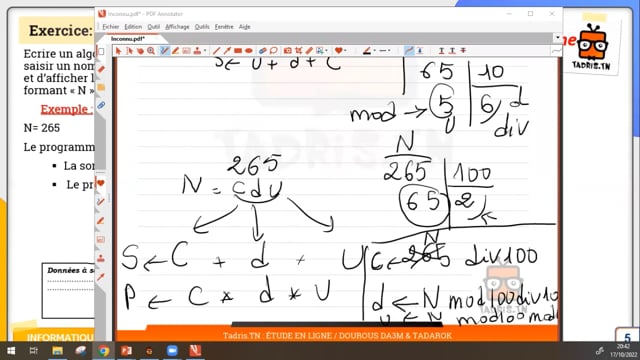 Exercice:
Inconnu.pdf* - PDF Annotator
Fichier Edition Outil Affichage Outils Fenêtre Aide
Inconnu.pdf*
TADRIS.TN
Ecrire un alg
saisir un nom
et d'afficher l
formant « N »
Exemple :
N= 265
Le programm
▪ La som
▪ Le pr
S ← U + d + C
65 10
mod → 5 6 d
U div
N
265 100
65 2
265
N = C d U
S ← C + d + U
P ← C * d * U
N
C ← 265 div 100
d ← N mod 100 div 10
U ← N mod 100 mod
TADRIS.TN
Données à s
INFORMATIQU
Tadris.TN : ÉTUDE EN LIGNE / DOUROUS DA3M & TADAROK
5
20:42
17/10/2022